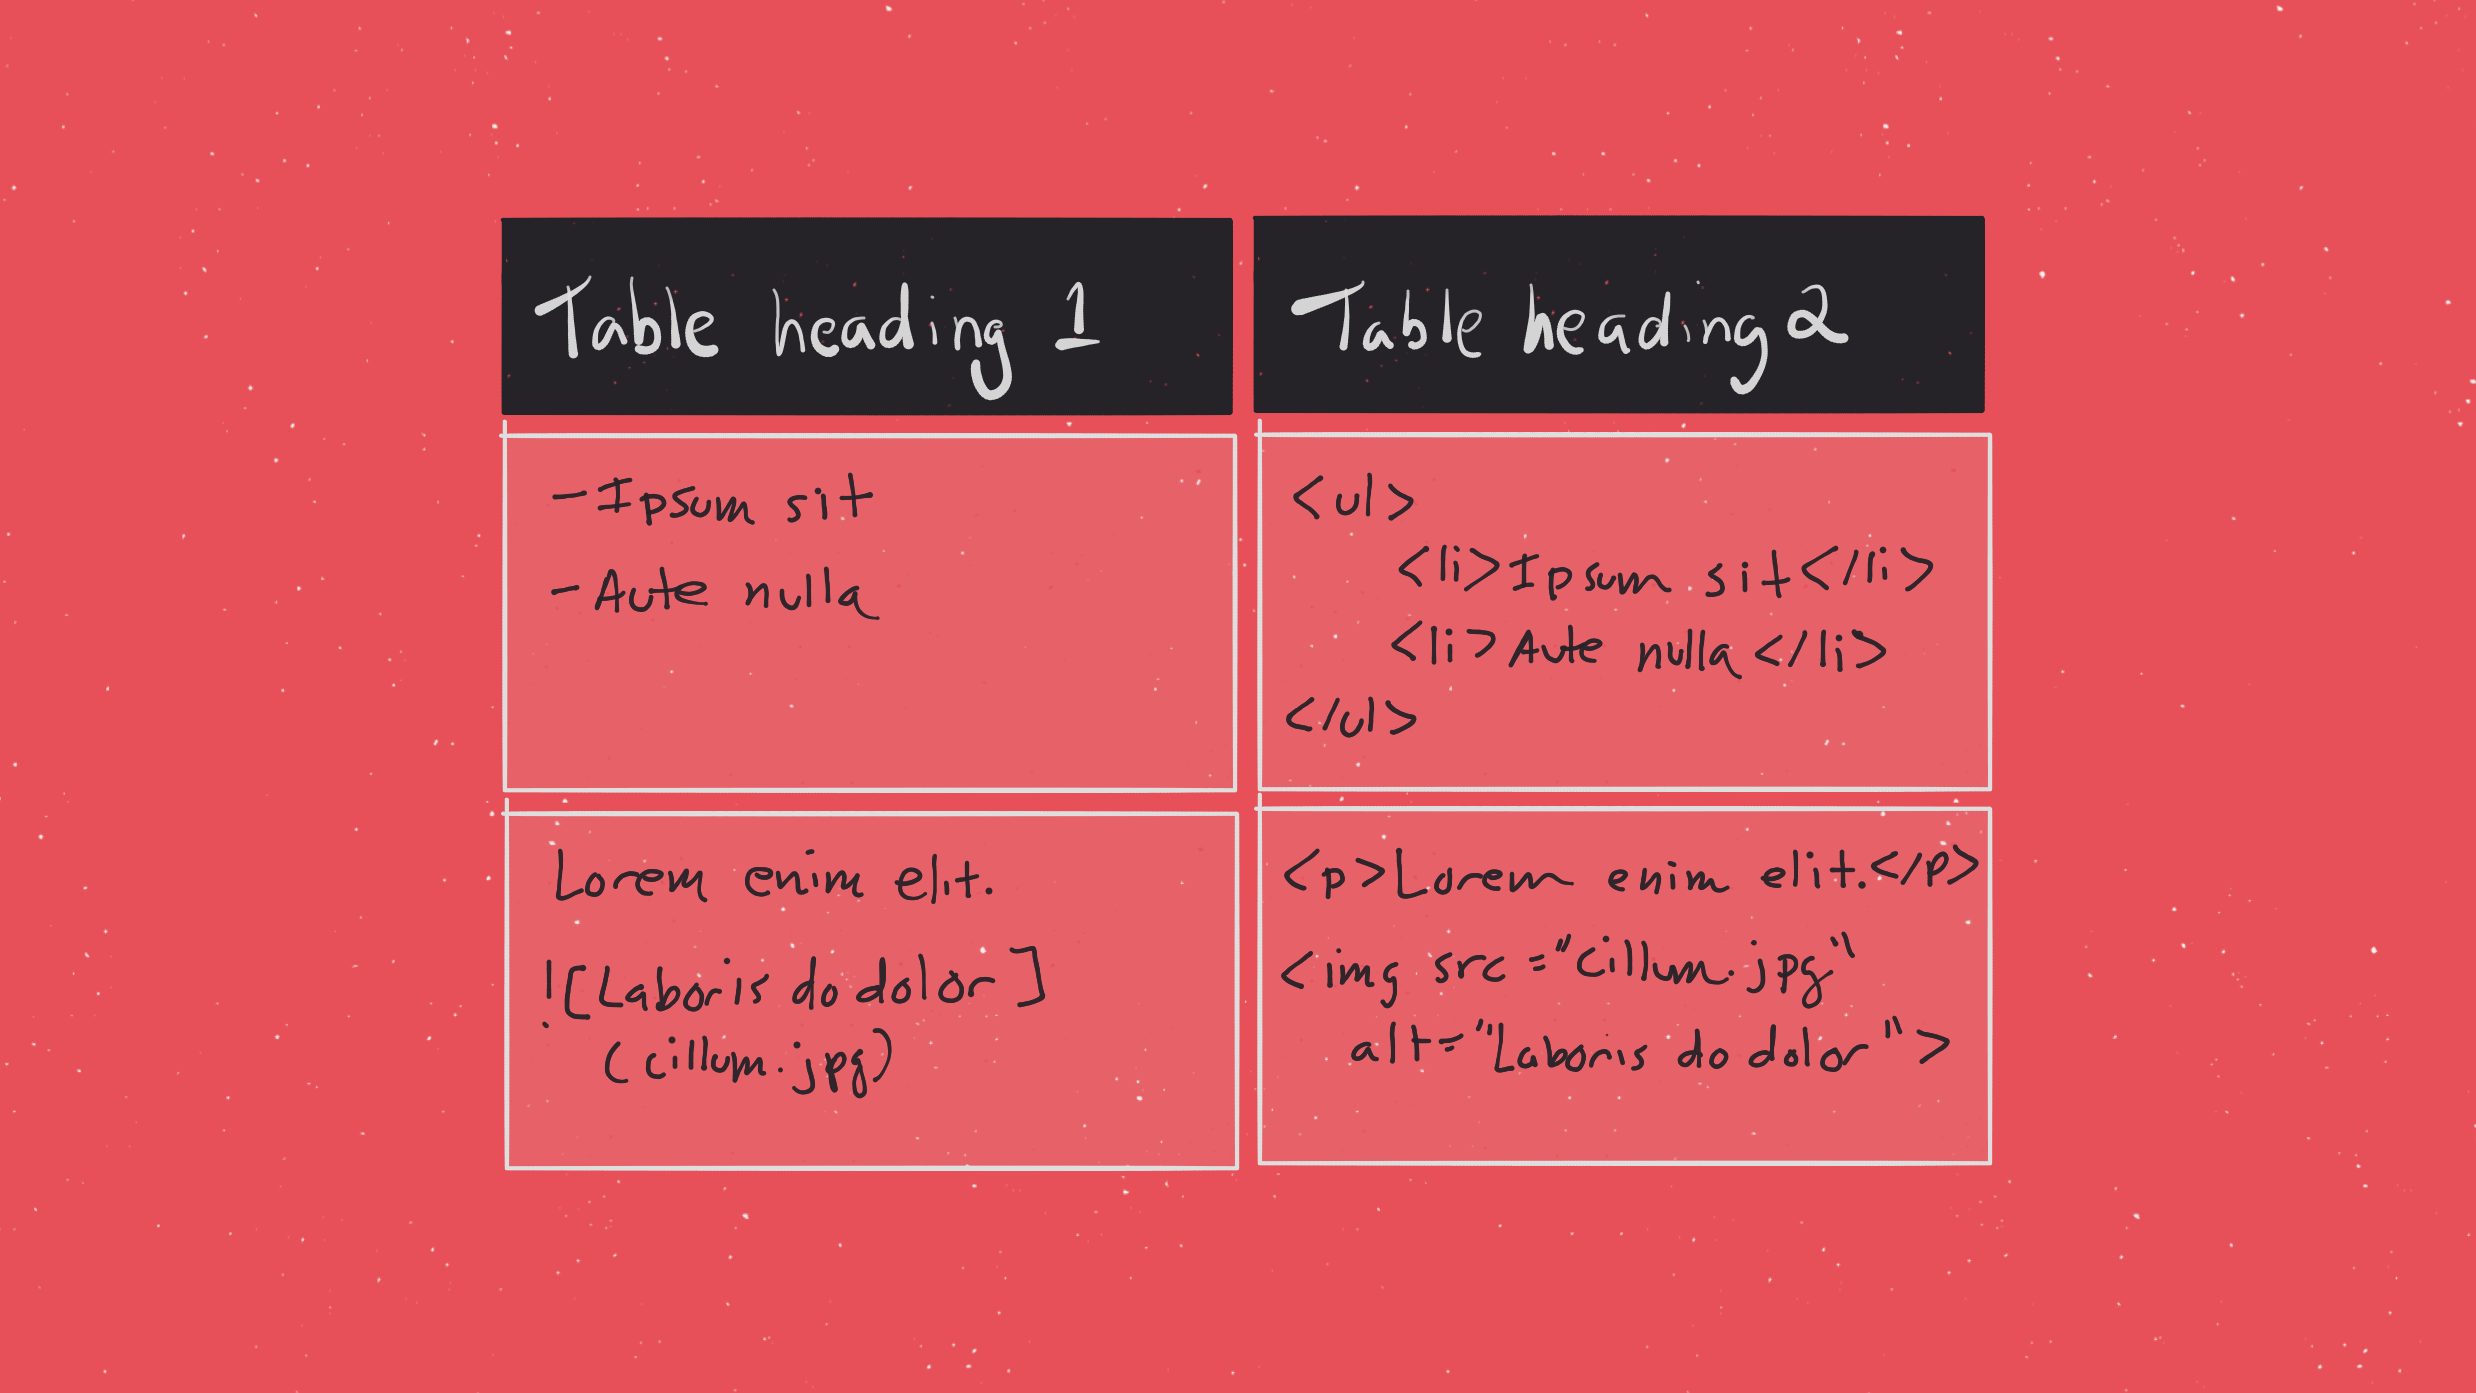 Table heading 1
Table heading 2
- Ipsum sit
- Aute nulla
<ul>
<li>Ipsum sit</li>
<li>Aute nulla</li>
</ul>
Lorem enim elit.
![Laboris do dolor]
(cillum.jpg)
<p>Lorem enim elit.</p>
<img src="cillum.jpg"
alt="Laboris do dolor">